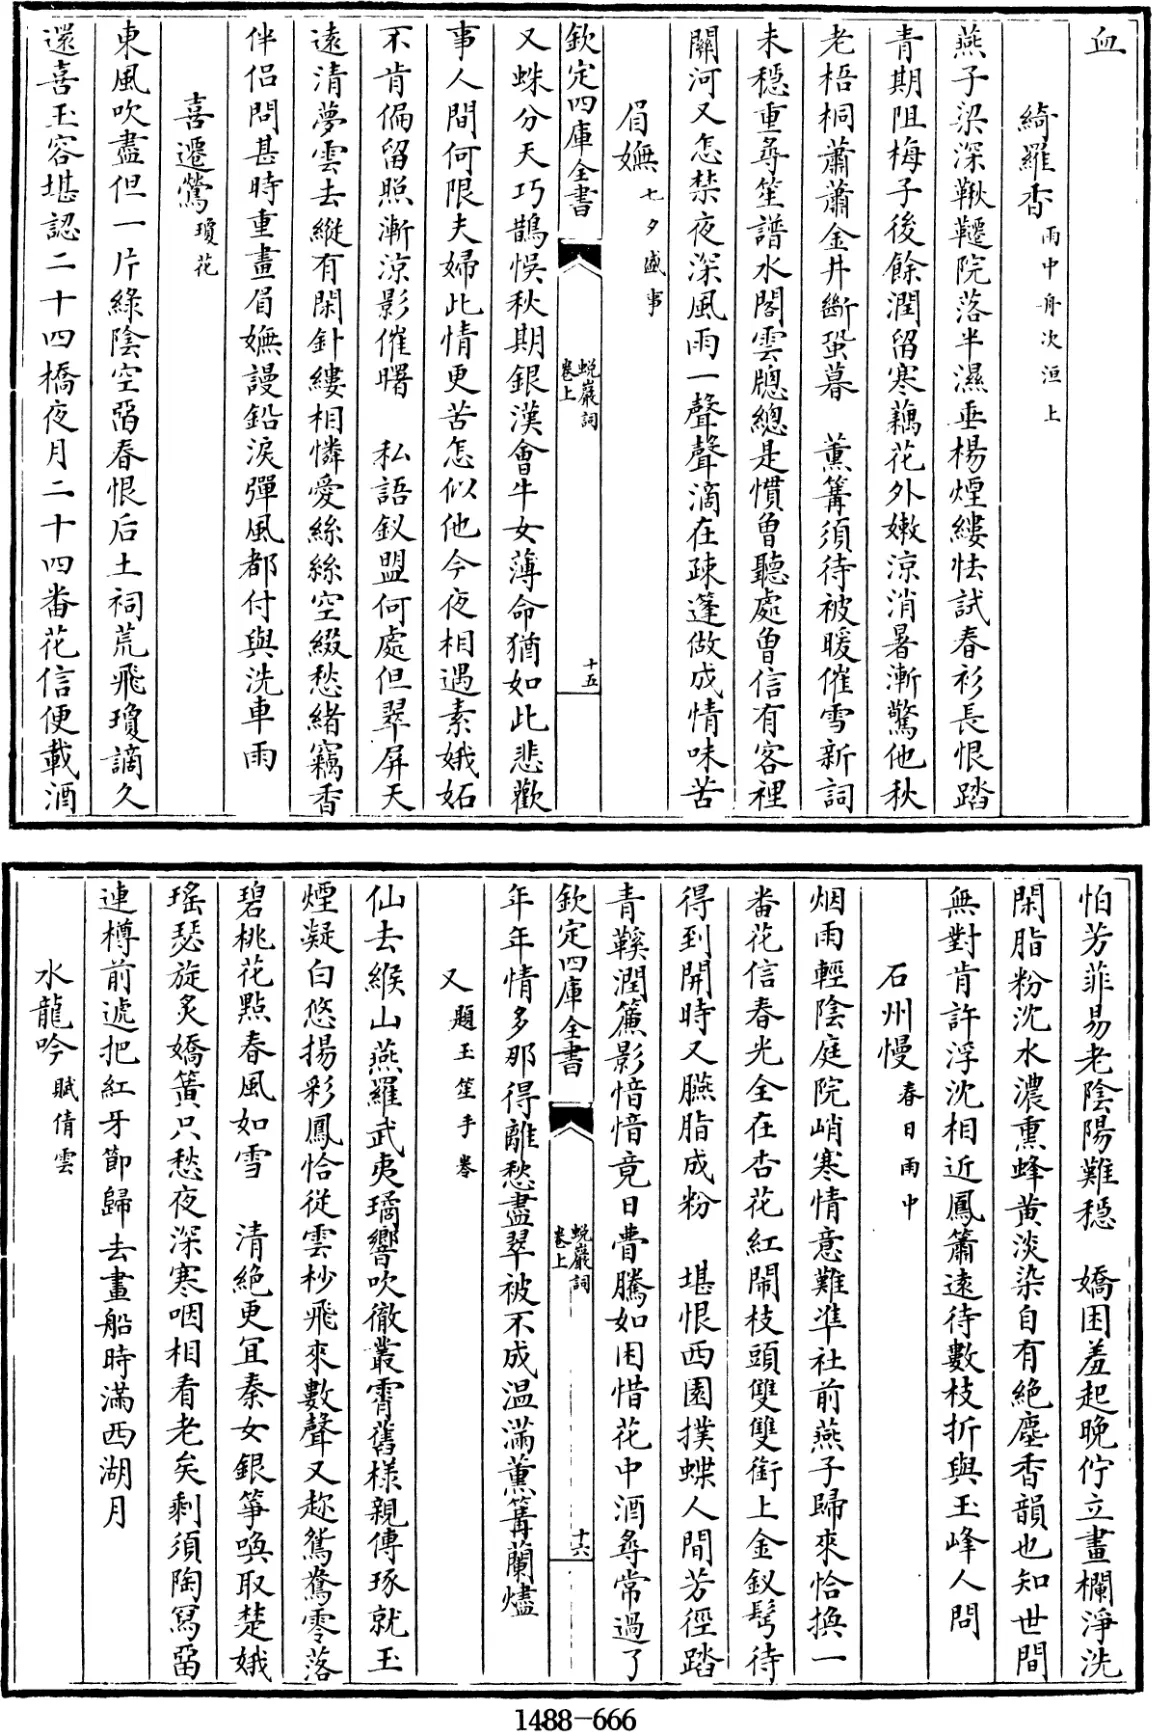 血
綺羅香雨中舟次洹上
燕子梁深鞦韆院落半濕垂楊煙縷怯試春衫長恨踏
青期阻梅子後餘潤留寒藕花外嫩涼消暑漸驚他秋
老梧桐蕭蕭金井斷蛩暮　薰篝須待被暖催雪新詞
未穩重尋笙譜水閣雲牕總是慣曾聽處曾信有客裡
關河又怎禁夜深風雨一聲聲滴在疎蓬做成情味苦
眉嫵七夕感事
欽定四庫全書　蛻巖詞卷上　十五
又蛛分天巧鵲悞秋期銀漢會牛女薄命猶如此悲歡
事人間何限夫婦此情更苦怎似他今夜相遇素娥妬
不肯偏留照漸涼影催曙　私語釵盟何處但翠屏天
遠清夢雲去縱有閑針縷相憐愛絲絲空綴愁緒竊香
伴侶問甚時重畫眉嫵謾鉛淚彈風都付與洗車雨
喜遷鶯瓊花
東風吹盡但一片綠陰空畱春恨后土祠荒飛瓊謫久
還喜玉容堪認二十四橋夜月二十四番花信便載酒
怕芳菲易老陰陽難穩　嬌困羞起晚佇立畫欄淨洗
閑脂粉沈水濃熏蜂黃淡染自有絕塵香韻也知世間
無對肯許浮沈相近鳳簫遠待數枝折與玉峰人問
石州慢春日雨中
烟雨輕陰庭院峭寒情意難準社前燕子歸來恰換一
番花信春光全在杏花紅鬧枝頭雙雙銜上金釵髩待
得到開時又臙脂成粉　堪恨西園撲蝶人間芳徑踏
青鞵潤簾影愔愔竟日瞢騰如困惜花中酒尋常過了
欽定四庫全書　蛻巖詞卷上　十六
年年情多那得離愁盡翠被不成温滿薰篝蘭燼
又題玉笙手卷
仙去緱山燕羅武夷璚響吹徹叢霄舊樣親傳琢就玉
煙凝白悠揚彩鳳恰從雲杪飛來數聲又趂鴛鴦零落
碧桃花點春風如雪　清絕更宜秦女銀箏喚取楚娥
瑤瑟旋炙嬌簧只愁夜深寒咽相看老矣剩須陶冩畱
連樽前遞把紅牙節歸去畫船時滿西湖月
水龍吟賦倩雲
1488-666